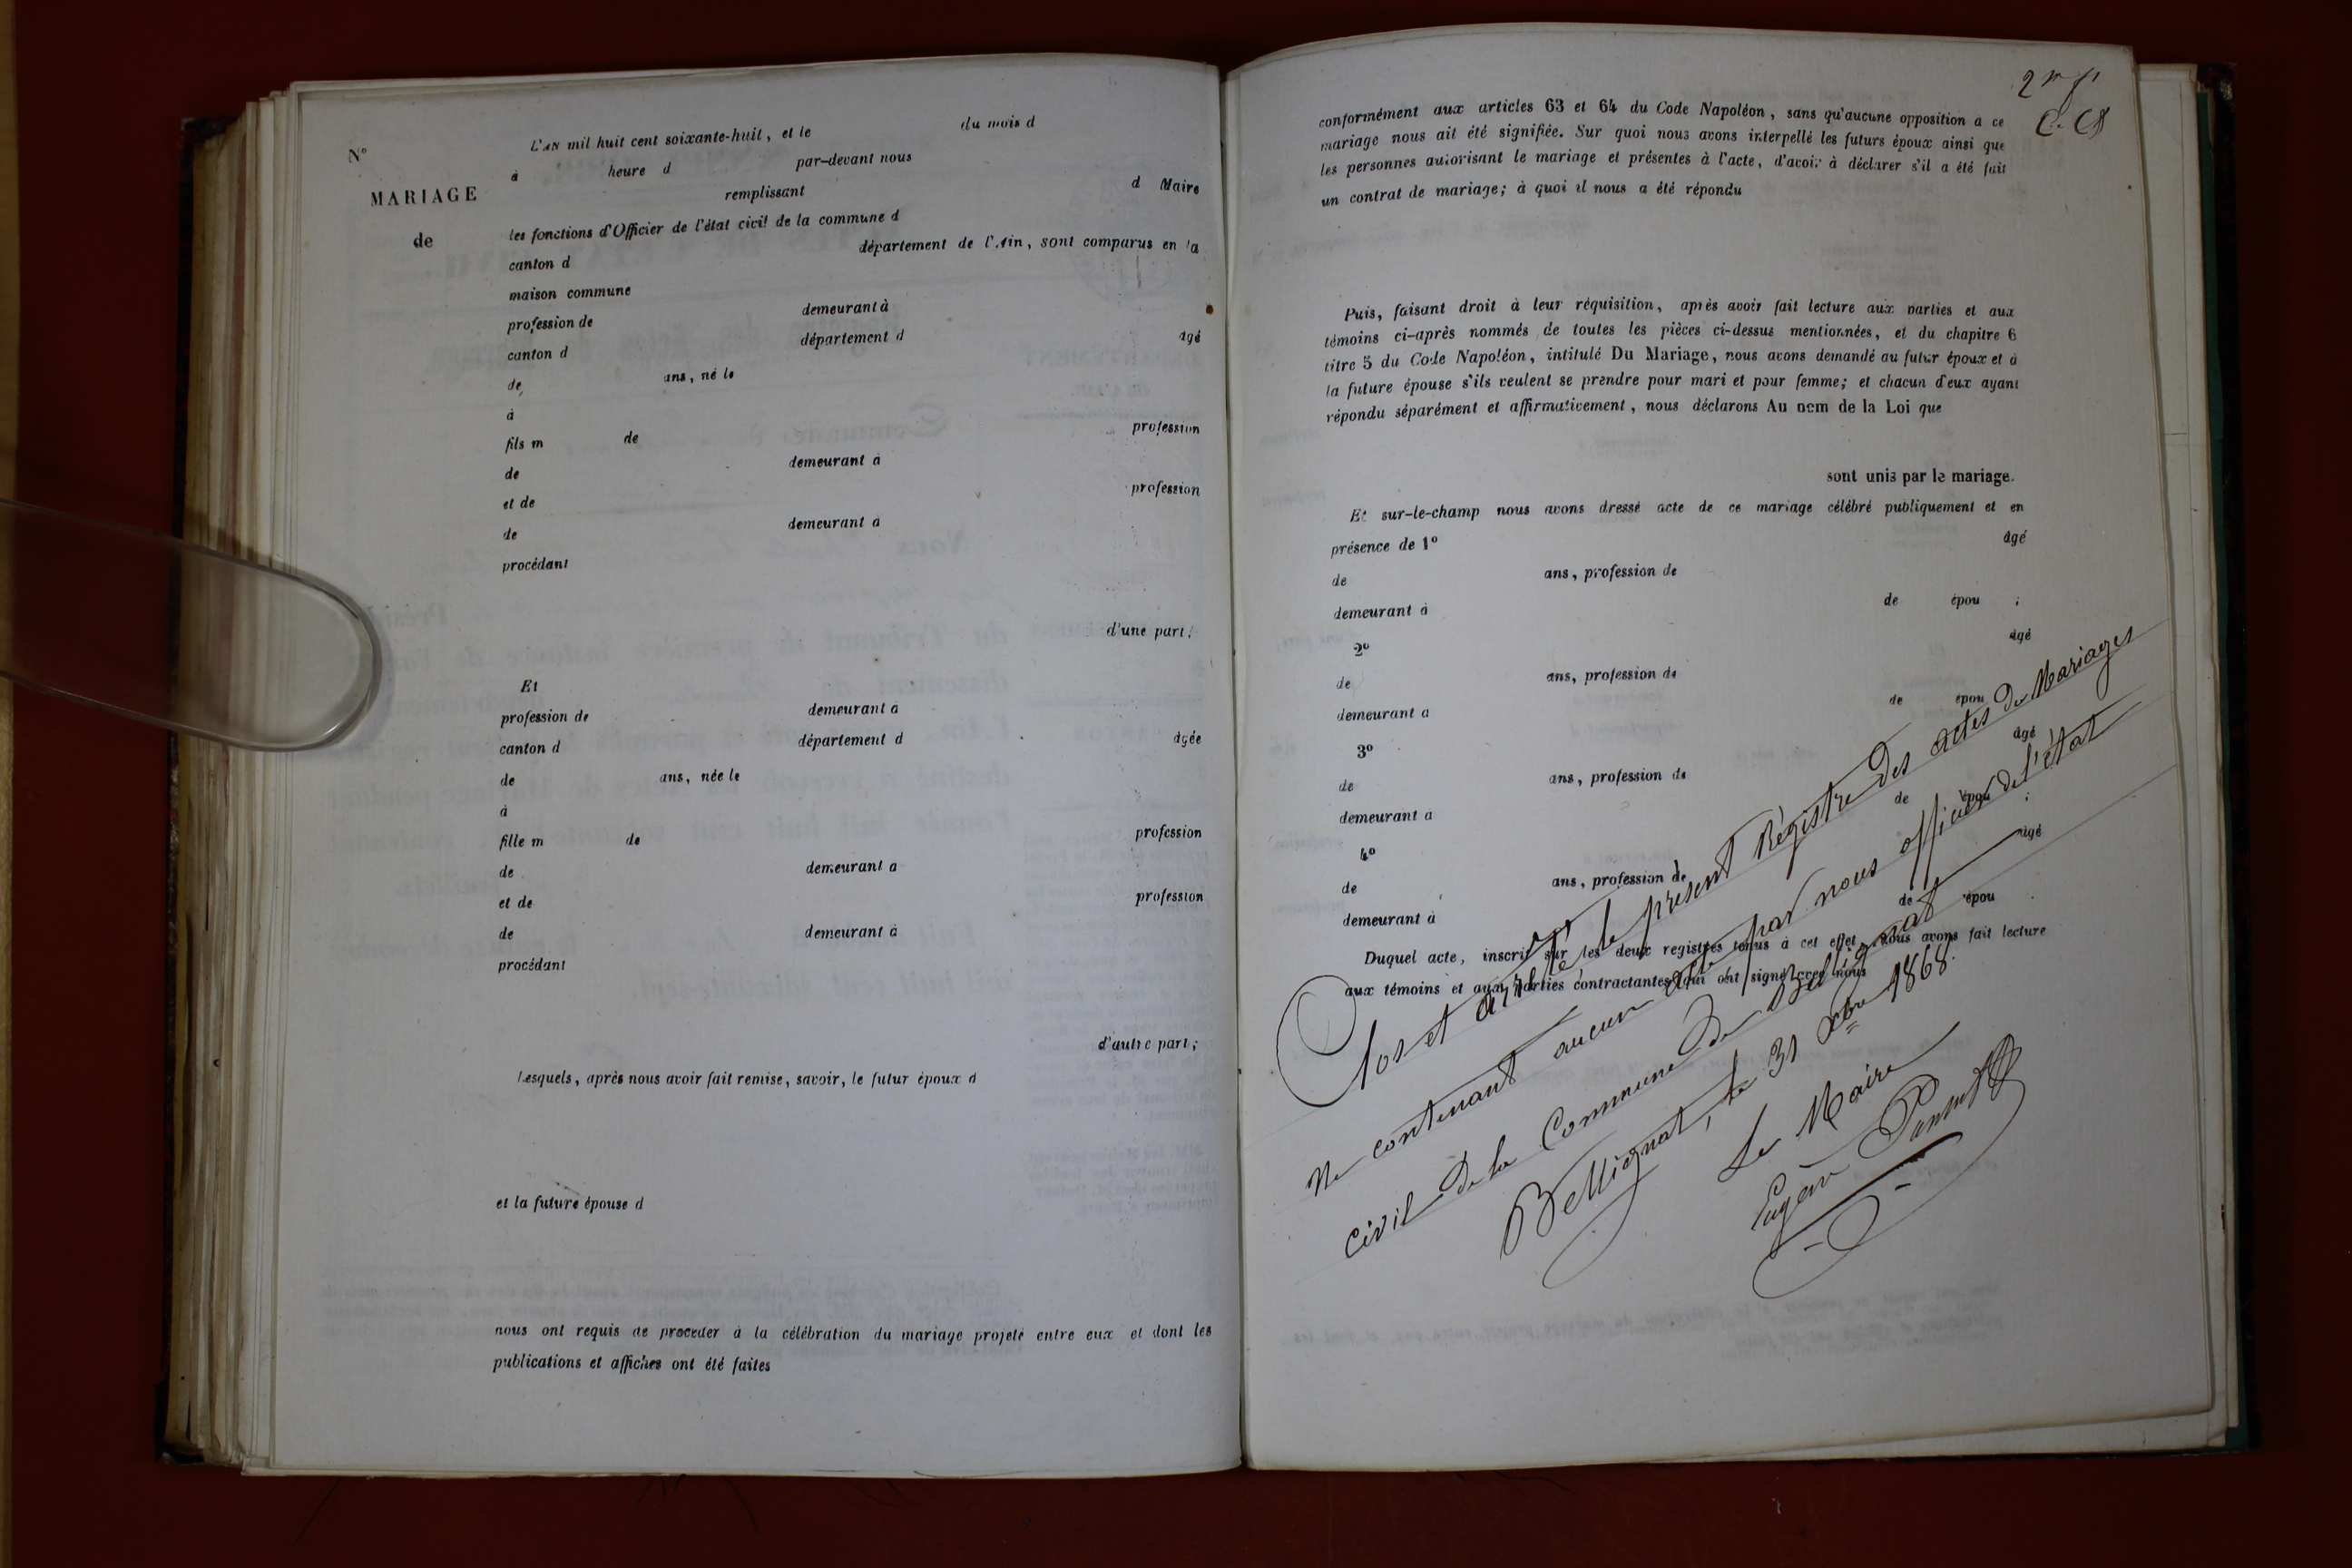 N°
MARIAGE
de
L'AN mil huit cent soixante-huit, et le du mois d
à heure d par-devant nous
remplissant d Maire
les fonctions d'Officier de l'état civil de la commune d
canton d département de l'Ain, sont comparus en la
maison commune
profession de demeurant à
canton d département d âgé
de ans, né le
à
fils m de profession
de demeurant à
et de profession
de demeurant à
procédant
d'une part;
Et
profession de demeurant à
canton d département d âgée
de ans, née le
à
fille m de profession
de demeurant à
et de profession
de demeurant à
procédant
d'autre part;
Lesquels, après nous avoir fait remise, savoir, le futur époux d
et la future épouse d
nous ont requis de procéder à la célébration du mariage projeté entre eux et dont les
publications et affiches ont été faites
conformément aux articles 63 et 64 du Code Napoléon, sans qu'aucune opposition à ce
mariage nous ait été signifiée. Sur quoi nous avons interpellé les futurs époux ainsi que
les personnes autorisant le mariage et présentes à l'acte, d'avoir à déclarer s'il a été fait
un contrat de mariage; à quoi il nous a été répondu
Puis, faisant droit à leur réquisition, après avoir fait lecture aux parties et aux
témoins ci-après nommés de toutes les pièces ci-dessus mentionnées, et du chapitre 6
titre 5 du Code Napoléon, intitulé Du Mariage, nous avons demandé au futur époux et à
la future épouse s'ils veulent se prendre pour mari et pour femme; et chacun d'eux ayant
répondu séparément et affirmativement, nous déclarons Au nom de la Loi que
sont unis par le mariage.
Et sur-le-champ nous avons dressé acte de ce mariage célébré publiquement et en
présence de 1° âgé
de ans, profession de
demeurant à de épou ;
2° âgé
de ans, profession de
demeurant à de épou
3° âgé
de ans, profession de
demeurant à de épou ;
4° âgé
de ans, profession de
demeurant à de épou
Duquel acte, inscrit sur les deux registres tenus à cet effet, nous avons fait lecture
aux témoins et aux parties contractantes qui ont signé avec nous
Clos et arrêté le présent Régistre des actes de Mariages
Ne contenant aucun acte par nous officier de l'état
civil de la Commune de Bellignat
Bellignat, le 31 Xbre 1868.
Le Maire
Eugène